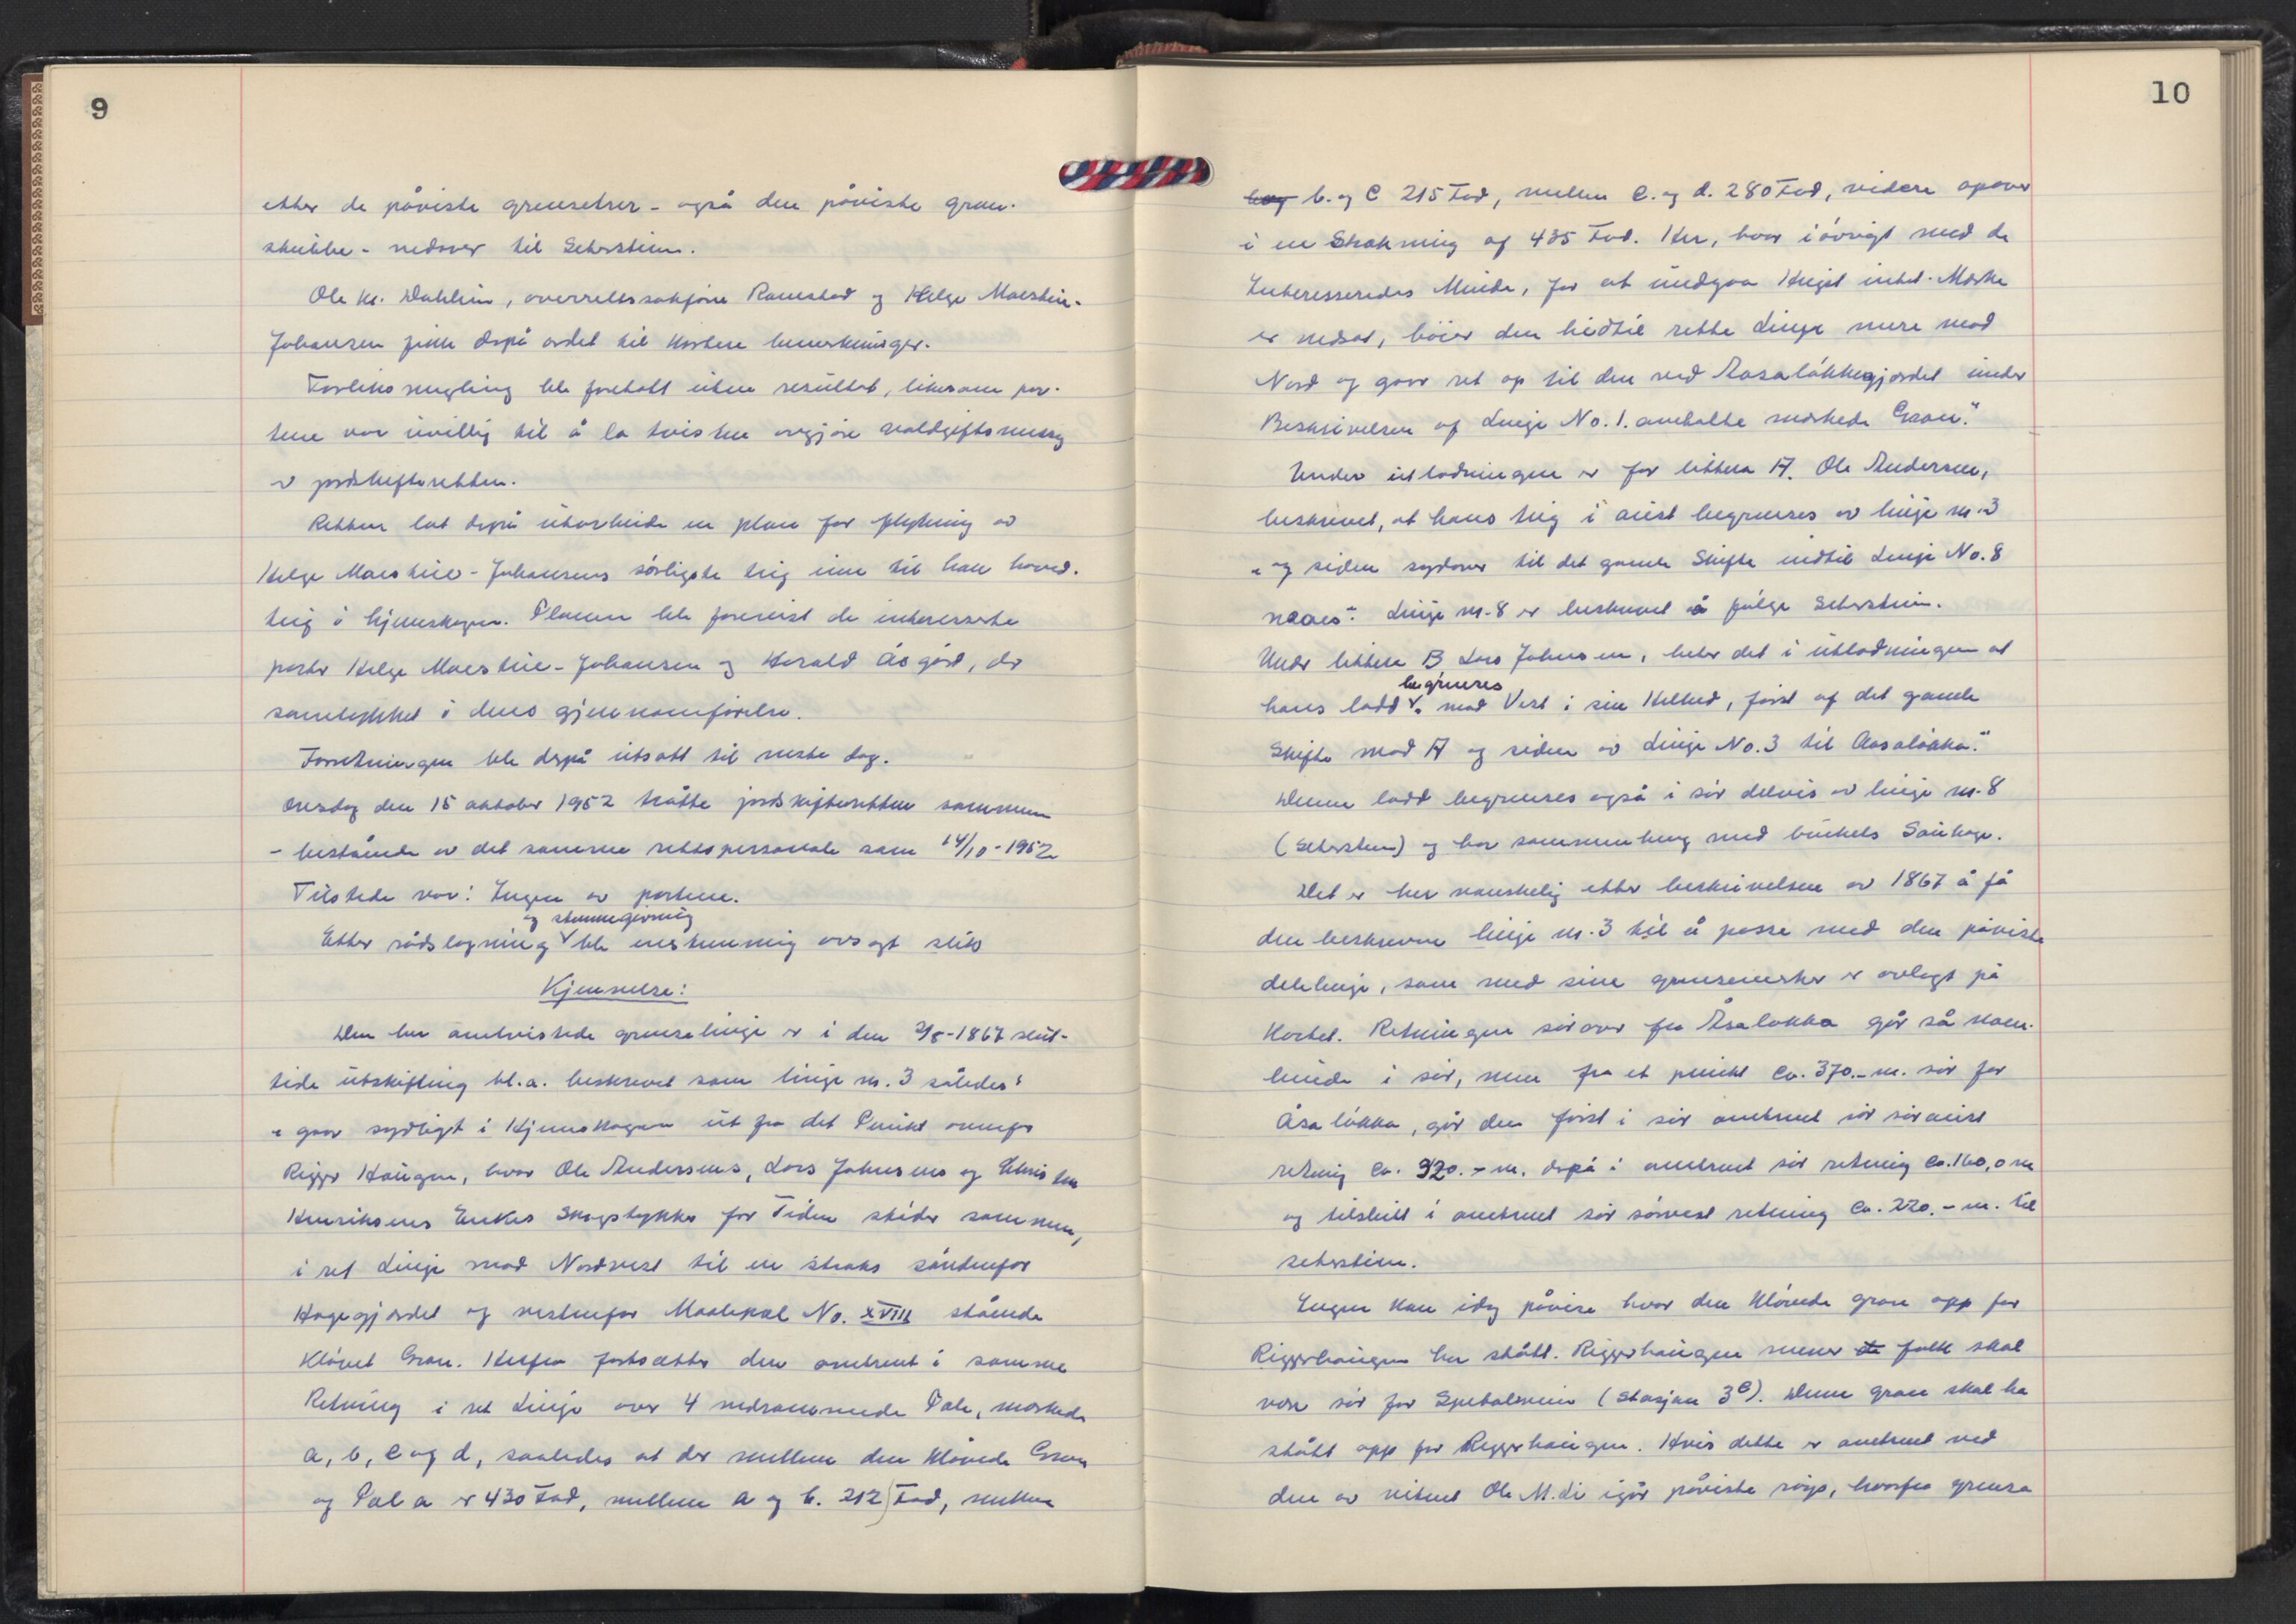 9
etter de påviste grensetrær - også den påviste gran-
stubbe - nedover til Seterstien.
Ole Kr. Dahlin, overrettssakfører Ramstad og Helge Maestue-
Johansen fikk derpå ordet til kortere bemerkninger.
Forliksmegling ble foretatt uten resultat, likesom par-
tene var uvillig til å la tvisten avgjøre voldgiftsmessig
av jordskifteretten.
Retten lot derpå utarbeide en plan for flytning av
Helge Maestue-Johansens sørligste teig inn til hans hoved-
teig i hjemskogen. Planen ble forevist de interesserte
parter Helge Maestue-Johansen og Harald Åsgård, der
samtykket i dens gjennomførelse.
Forretningen ble derpå utsatt til neste dag.
Onsdag den 15 oktober 1952 trådte jordskifteretten sammen
- bestående av det samme rettspersonale som 14/10-1952
Tilstede var: Ingen av partene.
og stemmegivning
Etter rådslagning ˅ ble enstemmig avsagt slik
Kjennelse:
Den her omtvistede grenselinje er i den 2/8-1867 slut-
tede utskiftning bl.a. beskrevet som linje nr. 3 således:
"gaar sydligst i Hjemskogen ut fra det Punkt ovenfor
Rigger Haugen, hvor Ole Andersens, Lars Johnsens og Christen
Henriksens Enkes Skogstykker for Tiden støder sammen,
i ret Linje mod Nordvest til en straks søndenfor
Hagegjordet og vestenfor Maalepæl No. XVIII stående
Kløvet Gran. Herfra fortsætter den omtrent i samme
Retning i ret Linje over 4 nedrammede Pæle, mærkede
a, b, c og d, saaledes at der mellem den Kløvede Gran
og Pæl a er 430 Fod, mellem a og b. 212 Fod, mellem
10
b. og C 215 Fod, mellem C. og d. 280 Fod, videre opover
i en Strækning af 435 Fod. Her, hvor iøvrigt med de
Interesseredes Minde, for at undgaa Hugst intet Mærke
er nedsat, bøier den hidtil rette Linje mere mod
Nord og gaar ret op til den ved Aasaløkkegjærdet under
Beskrivelsen af Linje No. 1. omtalte mærkede Gran."
Under utlodningen er for littera A. Ole Andersen,
beskrevet, at hans teig i aust begrenses av linje nr. 3
"og siden sydover til det gamle Skifte indtil Linje No. 8
naaes". Linje nr. 8 er beskrevet å følge Seterstien.
Under littera B Lars Johnsen, heter det i utlodningen at
begrænses
hans lodd ˅ "mod Vest i sin Helhed, først af det gamle
Skifte mod A og siden av Linje No. 3 til Aasaløkka."
Denne lodd begrenses også i sør delvis av linje nr. 8
(Seterstien) og har sammenheng med brukets Sauhage.
Det er her vanskelig etter beskrivelsen av 1867 å få
den beskrevne linje nr. 3 til å passe med den påviste
delelinje, som med sine grensemerker er avlagt på
Kartet. Retningen sørover fra Åsaløkka går så noen-
lunde i sør, men fra et punkt ca. 370.- m. sør for
Åsaløkka, går den først i sør omtrent sør søraust
retning ca. 320.- m. derpå i omtrent sør retning ca. 160,0 m
og tilslutt i omtrent sør sørvest retning ca. 220.- m. til
seterstien.
Ingen kan idag påvise hvor den kløvede gran opp for
Riggerhaugen har stått. Riggerhaugen mener folk skal
være sør for Spetalsveien (Stasjon 3C). Denne gran skal ha
stått opp for Riggerhaugen. Hvis dette er omtrent ved
den av vitnet Ole M. Li igår påviste røys, hvorfra grensa